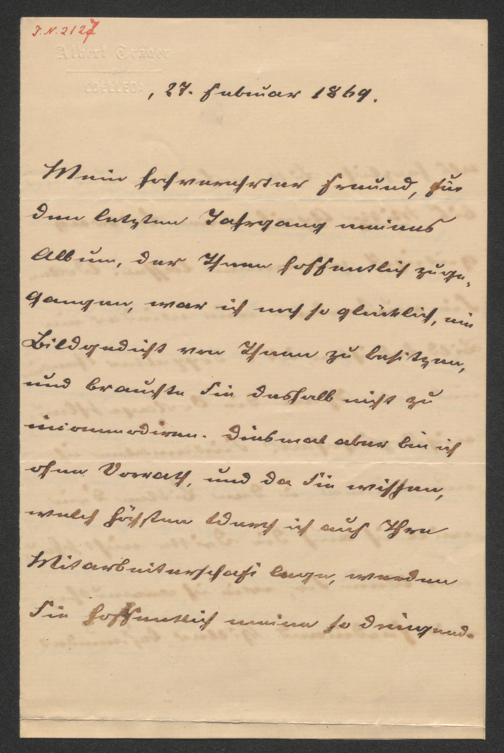 J.N. 2127
Albert Traeger
, 27. Februar 1869.
Mein hochverehrter Freund, für
den letzten Jahrgang meines
Album, der Ihnen hoffentlich zuge-
gangen, war ich noch so glücklich, ein
Bildgedicht von Ihnen zu besitzen,
und brauchte Sie deshalb nicht zu
incommodiren. Diesmal aber bin ich
ohne Vorrath, und da Sie wissen,
welch höchsten Werth ich auf Ihre
Mitarbeiterschaft lege, werden
Sie hoffentlich meine so dringend-